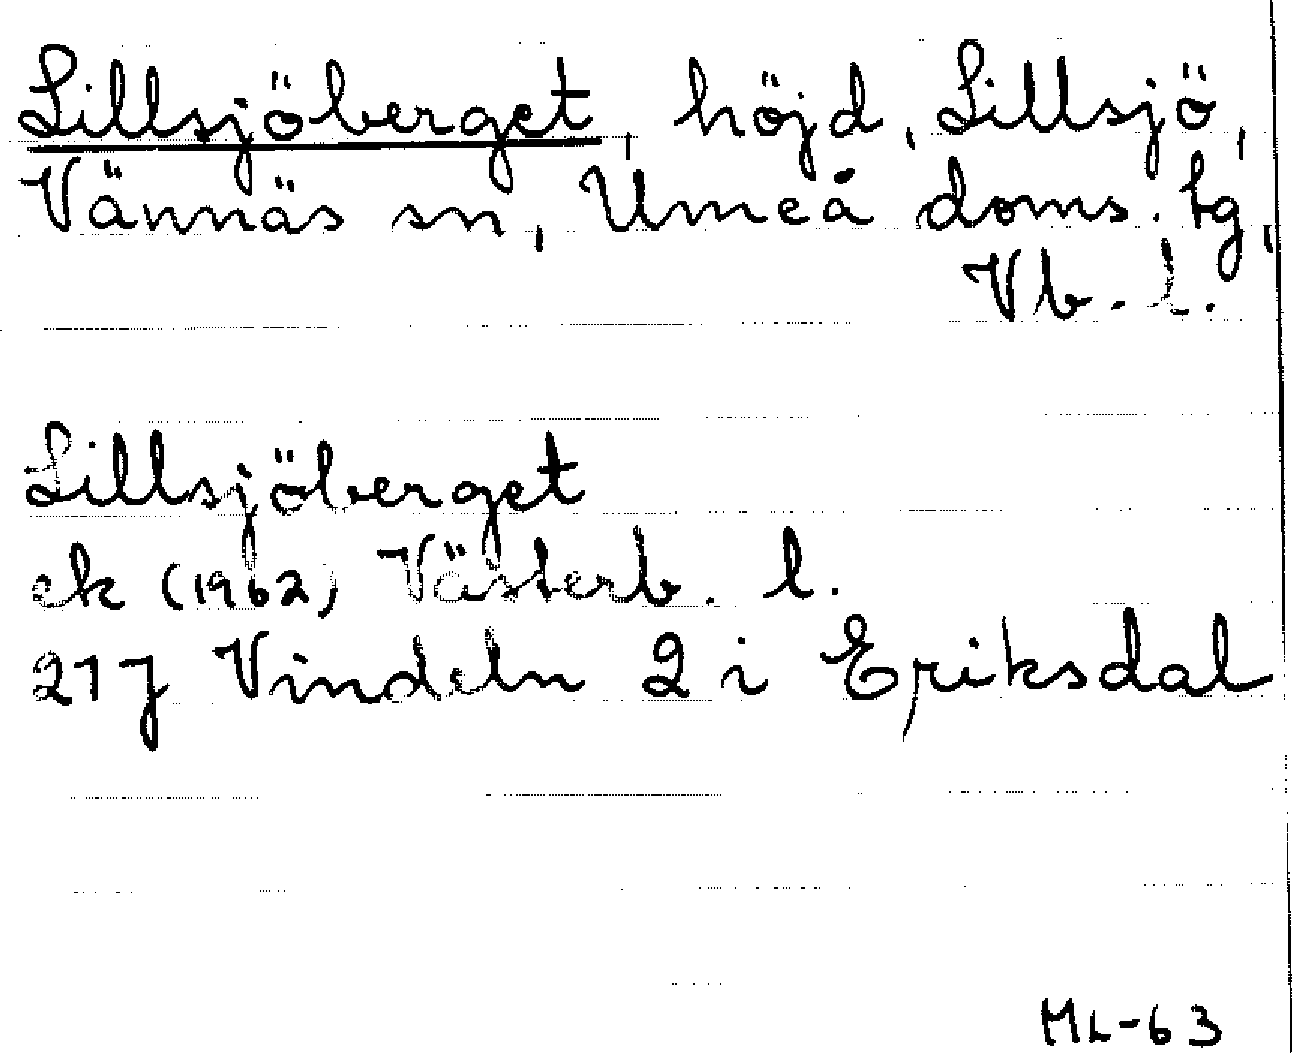 Lillsjöberget, höjd, Lillsjö,
Vännäs sn, Umeå doms. tg,
Vb. l.
Lillsjöberget
ek (1962) Västerb. l.
21J Vindeln 2 i Eriksdal
ML-63